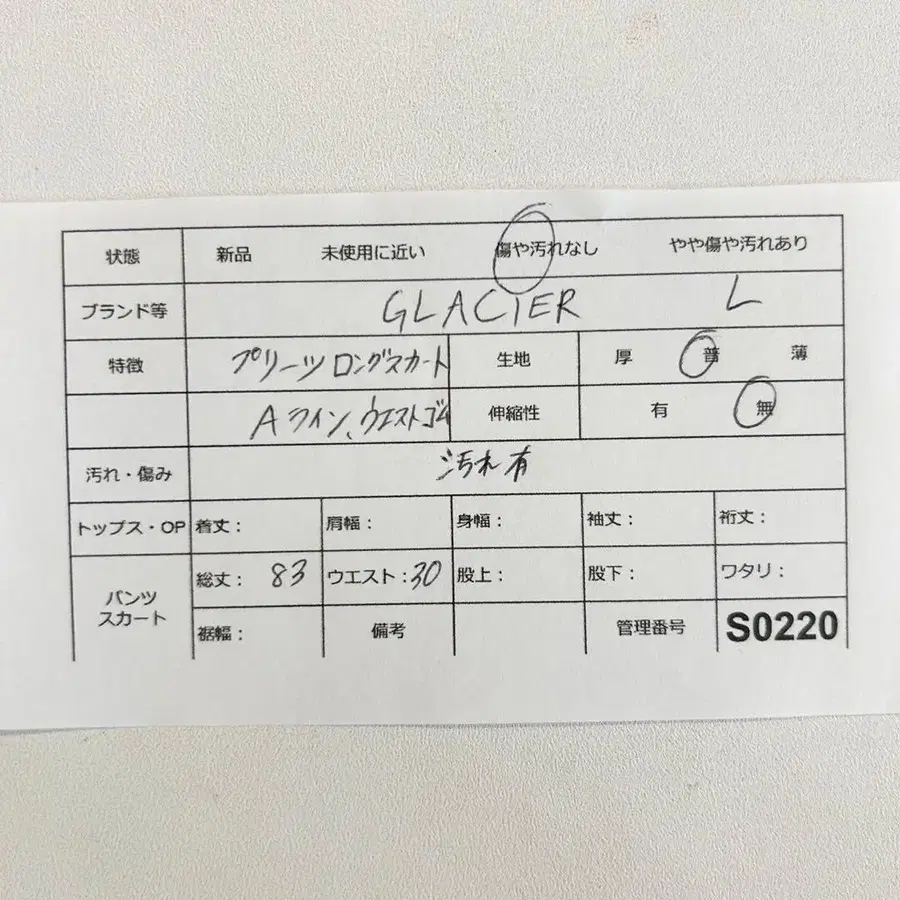 状態 新品 未使用に近い 傷や汚れなし やや傷や汚れあり
ブランド等 GLACIER L
特徴 プリーツロングスカート 生地 厚 普 薄
Aライン、ウエストゴム 伸縮性 有 無
汚れ・傷み 汚れ有
トップス・OP 着丈: 肩幅: 身幅: 袖丈: 裄丈:
パンツ
スカート
総丈: 83 ウエスト:30 股上: 股下: ワタリ:
裾幅: 備考 管理番号 S0220